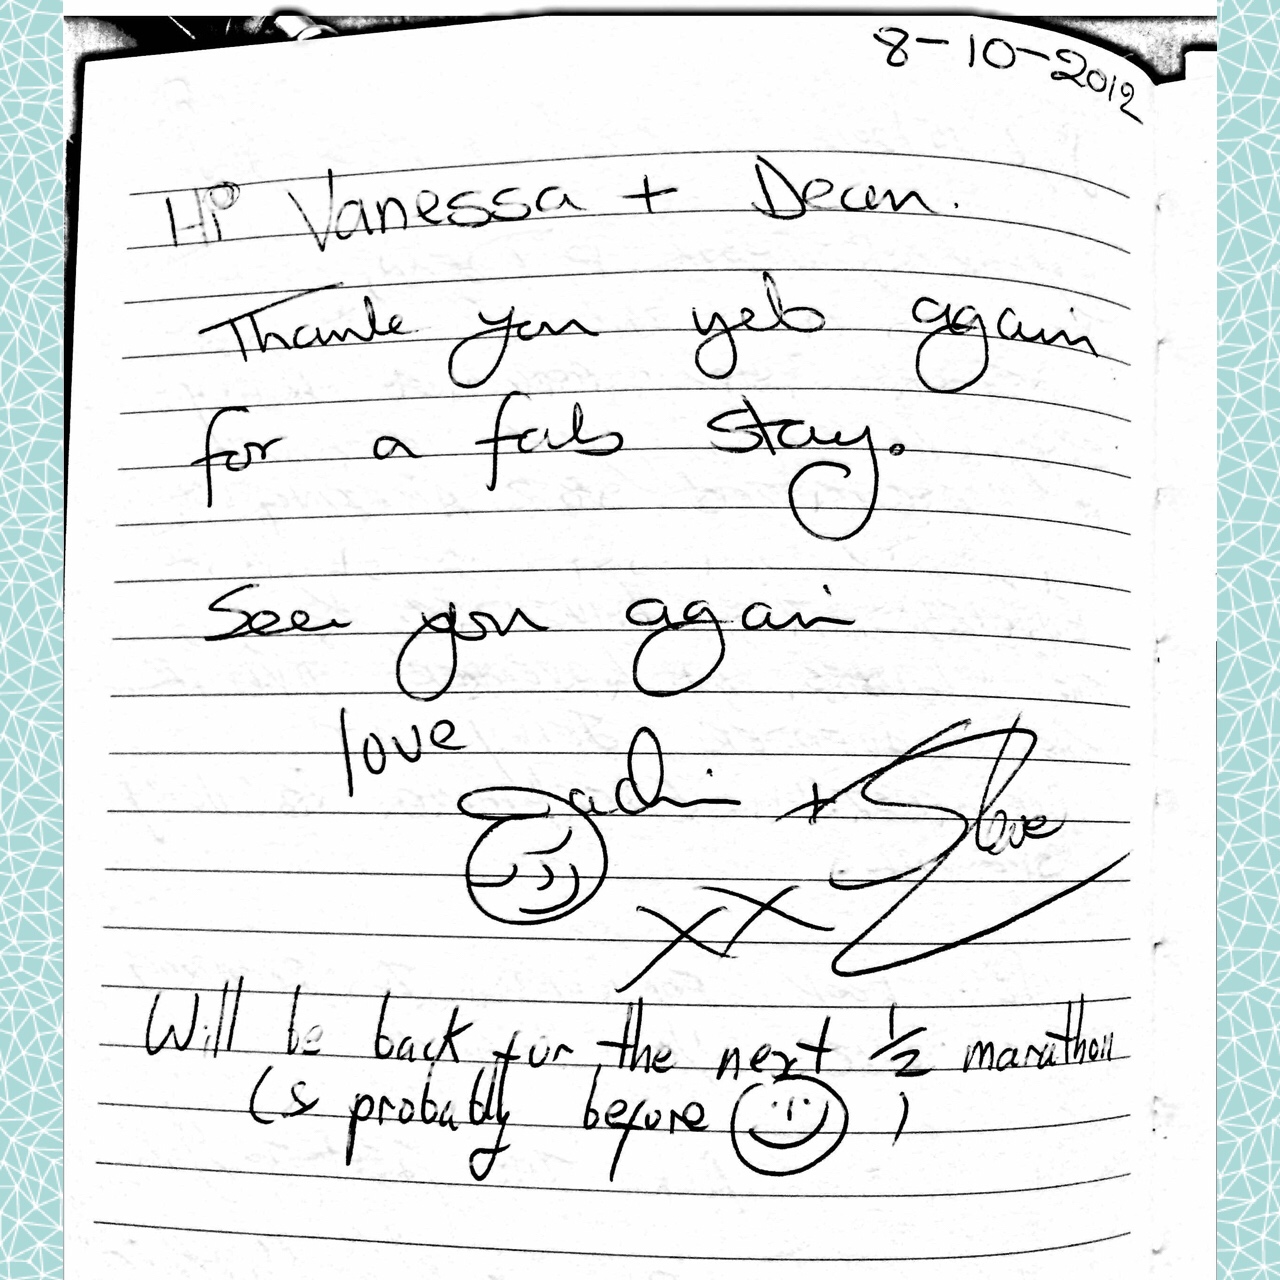 8-10-2012
Hi Vanessa + Dean.
Thank you yet again
for a fab stay.
See you again
love
+ Steve
xx
Will be back for the next 1/2 marathon
(& probably before )